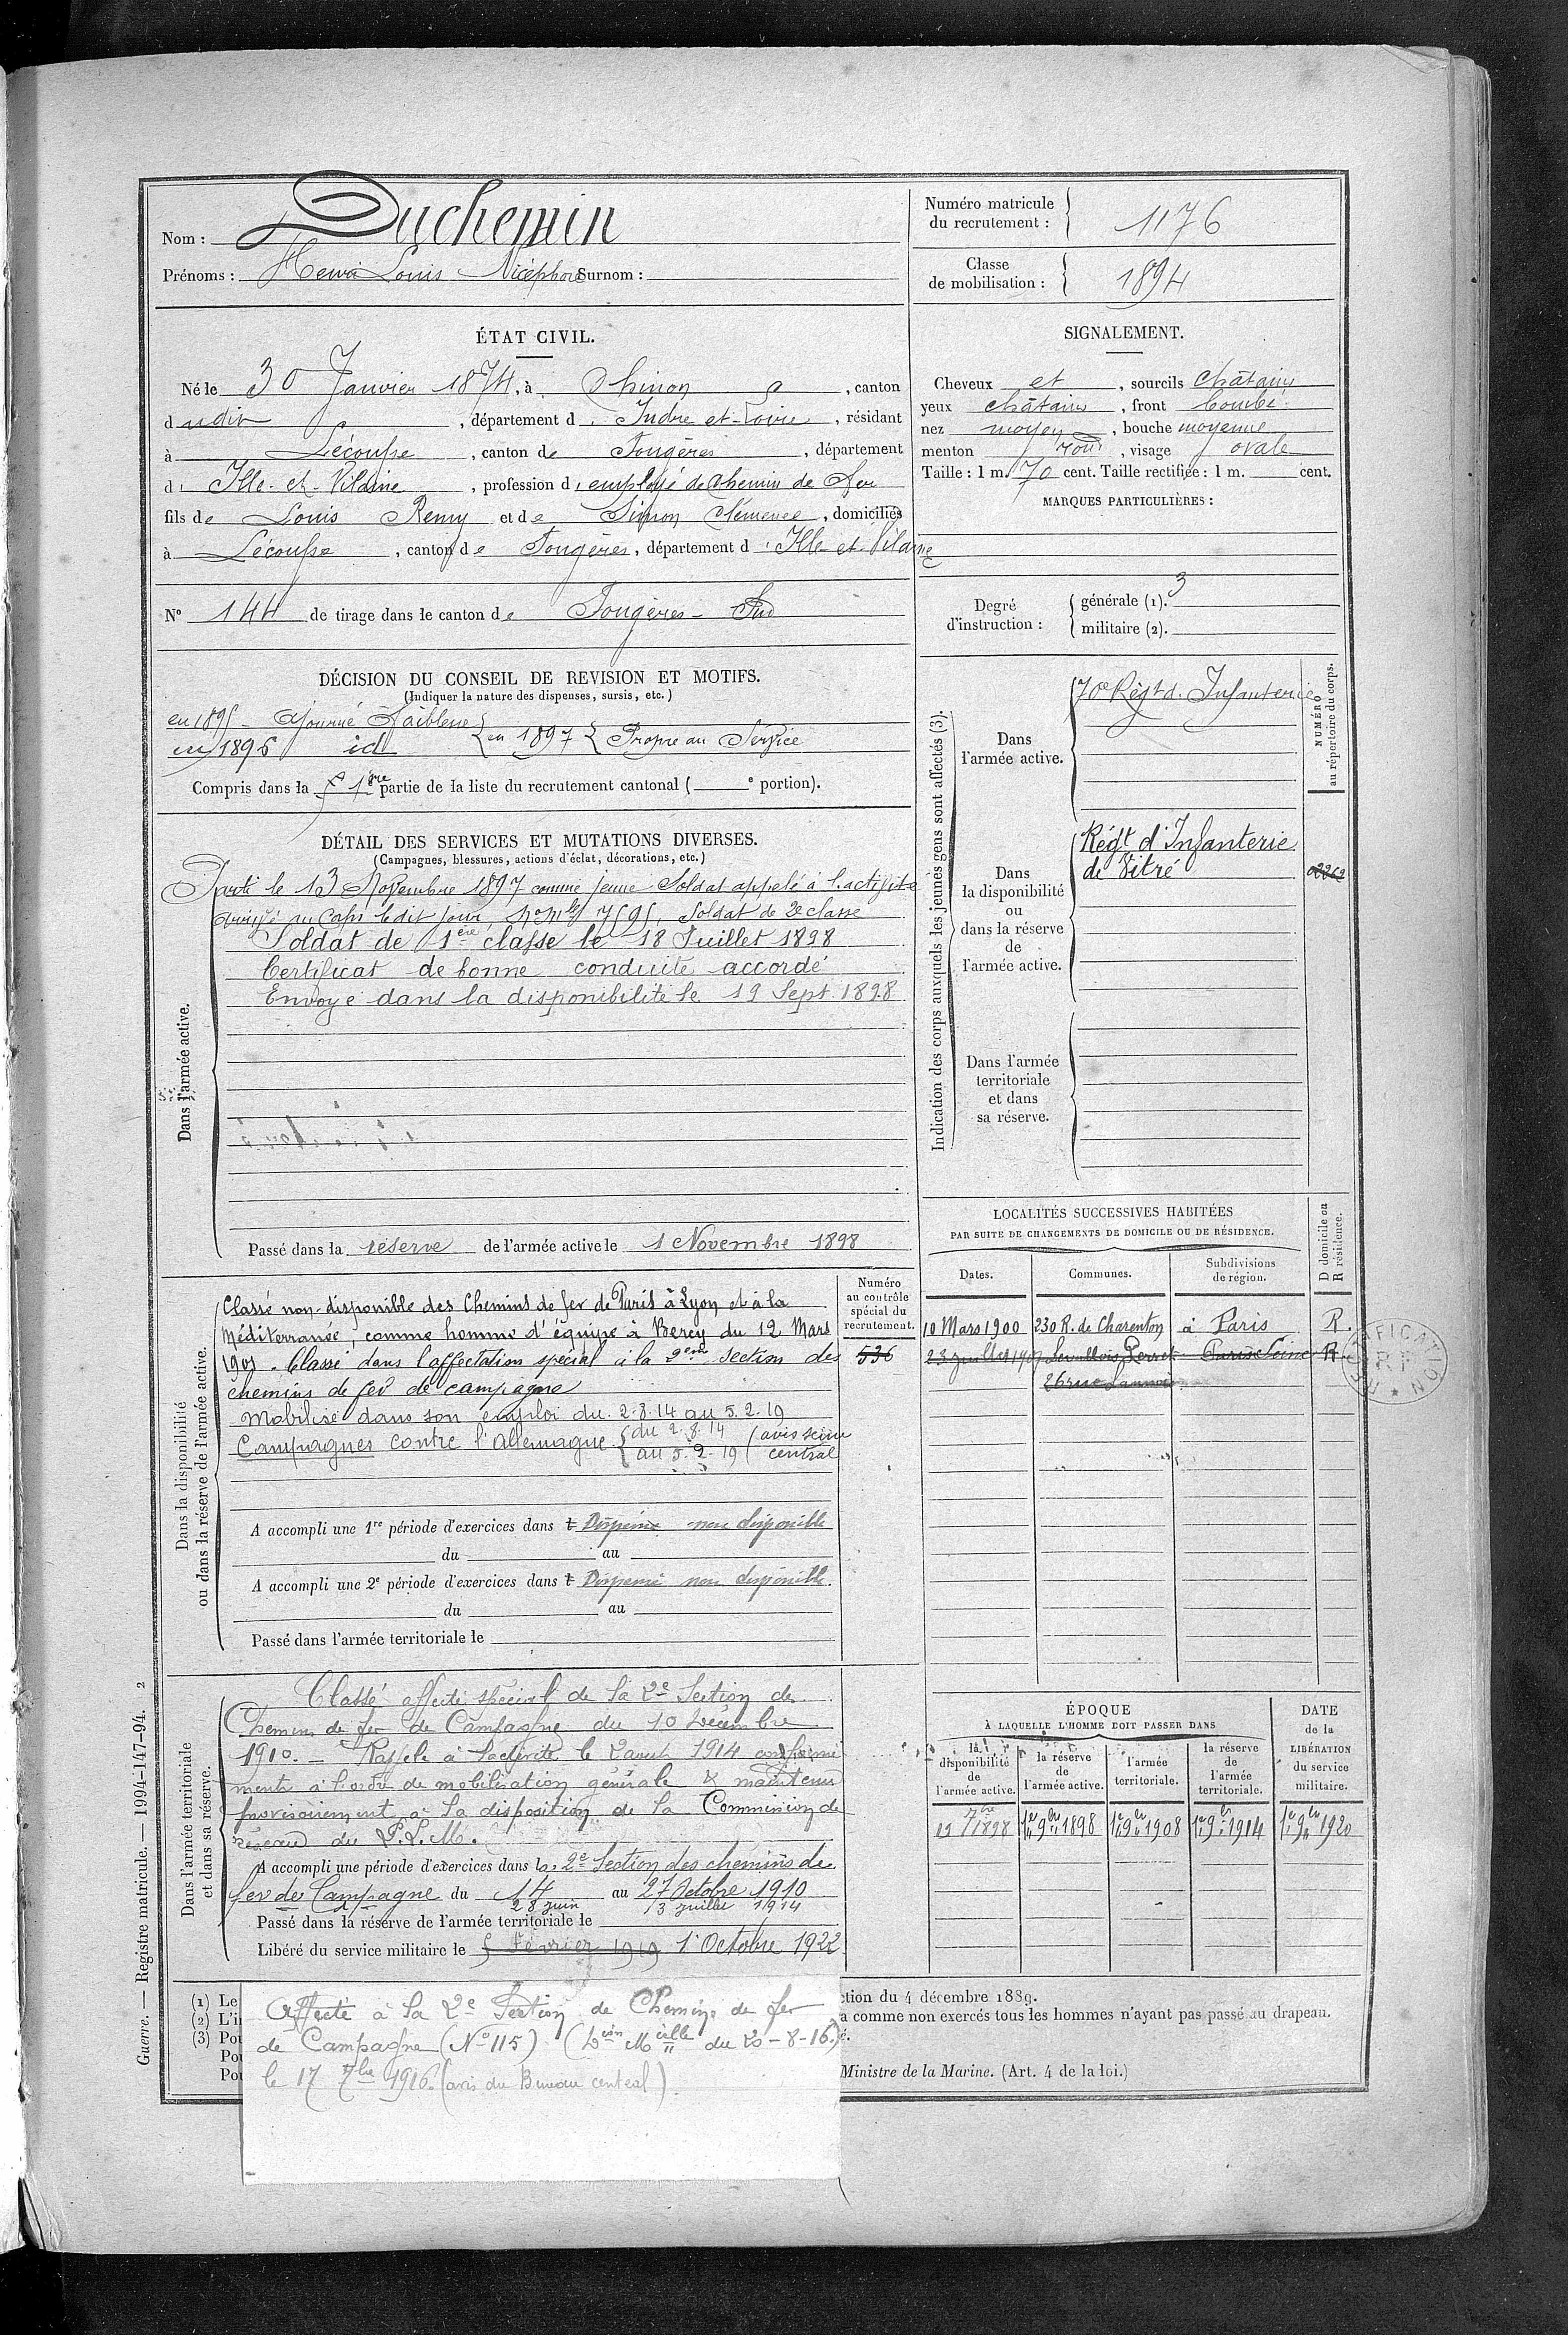 Nom : Duchemin
Prénoms : Henri Louis Nicéphore Surnom :
Numéro matricule
du recrutement :
1176
Classe
de mobilisation :
1894
ÉTAT CIVIL.
Né le 30 Janvier 1874, à Chinon, canton
dudit, département d'Indre et-Loire, résidant
à Lécousse, canton de Fougères, département
d'Ille-et-Vilaine, profession d'employé de chemin de fer
fils de Louis Remy et de Simon Clémence, domiciliés
à Lécousse, canton de Fougères, département d'Ille et Vilaine
N° 144 de tirage dans le canton de Fougères-Sud
SIGNALEMENT.
Cheveux et, sourcils châtains
yeux châtains, front bombé
nez moyen, bouche moyenne
menton rond, visage ovale
Taille : 1 m. 70 cent. Taille rectifiée : 1 m. cent.
MARQUES PARTICULIÈRES :
Degré
d'instruction :
générale (1). 3
militaire (2).
DÉCISION DU CONSEIL DE REVISION ET MOTIFS.
(Indiquer la nature des dispenses, sursis, etc.)
en 1895 - Ajourné Faiblesse
en 1896 id
en 1897 Propre au Service
Compris dans la 1ère partie de la liste du recrutement cantonal ( e portion).
DÉTAIL DES SERVICES ET MUTATIONS DIVERSES.
(Campagnes, blessures, actions d'éclat, décorations, etc.)
Dans l'armée active.
Parti le 13 Novembre 1897 comme jeune Soldat appelé à l'activité
arrivé au Corps ledit jour, n° mle 7595, Soldat de 2e classe
Soldat de 1ère classe le 18 Juillet 1898
Certificat de bonne conduite accordé
Envoyé dans la disponibilité le 19 Sept. 1898
Passé dans la réserve de l'armée active le 1 Novembre 1898
Indication des corps auxquels les jeunes gens sont affectés (3).
NUMÉRO
au répertoire du corps.
Dans
l'armée active.
70e Régt d. Infanterie
Dans
la disponibilité
ou
dans la réserve
de
l'armée active.
Régt d'Infanterie
de Vitré
Dans l'armée
territoriale
et dans
sa réserve.
LOCALITÉS SUCCESSIVES HABITÉES
PAR SUITE DE CHANGEMENTS DE DOMICILE OU DE RÉSIDENCE.
Dates.
Communes.
Subdivisions
de région.
D domicile ou
R résidence.
10 Mars 1900 230 R. de Charenton à Paris R.
Levallois Perret Seine R
26 rue
RECTIFICATION
RF
Dans la disponibilité
ou dans la réserve de l'armée active.
Numéro
au contrôle
spécial du
recrutement.
536
Classé non-disponible des Chemins de fer de Paris à Lyon et à la
Méditerranée, comme homme d'équipe à Bercy du 12 Mars
1901. Classé dans l'affectation spécial à la 2eme Section des
chemins de fer de campagne
Mobilisé dans son emploi du 2.8.14 au 5.2.19
Campagnes contre l'Allemagne du 2.8.14 (avis seine
au 5.2.19 (central
A accompli une 1re période d'exercices dans l Dispensé non disponible
du au
A accompli une 2e période d'exercices dans l Dispensé non disponible.
du au
Passé dans l'armée territoriale le
Dans l'armée territoriale
et dans sa réserve.
Classé affecté spécial de la 2e Section de
Chemins de fer de Campagne du 10 Décembre
1910. - Rappelé à l'activité le 2 août 1914 conformé
ment à l'ordre de mobilisation générale & maintenu
provisoirement à la disposition de la Commission de
réseau du P.L.M.
A accompli une période d'exercices dans la 2e Section des chemins de
fer de Campagne du 14 au 27 Octobre 1910
28 juin 13 juillet 1914
Passé dans la réserve de l'armée territoriale le
Libéré du service militaire le 5 Février 1919 1er Octobre 1922
ÉPOQUE
À LAQUELLE L'HOMME DOIT PASSER DANS
DATE
de la
LIBÉRATION
du service
militaire.
la
disponibilité
de
l'armée active.
la réserve
de
l'armée active.
l'armée
territoriale.
la réserve
de
l'armée
territoriale.
19 7bre 1898 1er 9bre 1898 1er 9bre 1908 1er 9bre 1914 1er 9bre 1920
(1) Le
(2) L'i
(3) Pou
Pou
Pou
ction du 4 décembre 1889.
a comme non exercés tous les hommes n'ayant pas passé au drapeau.
é.
Ministre de la Marine. (Art. 4 de la loi.)
Affecté à la 2e Section de Chemins de fer
de Campagne (N° 115) (Don Mielle du 20-8-16.)
le 17 7bre 1916. (avis du Bureau central).
Guerre. — Registre matricule. — 1994-147-94. 2